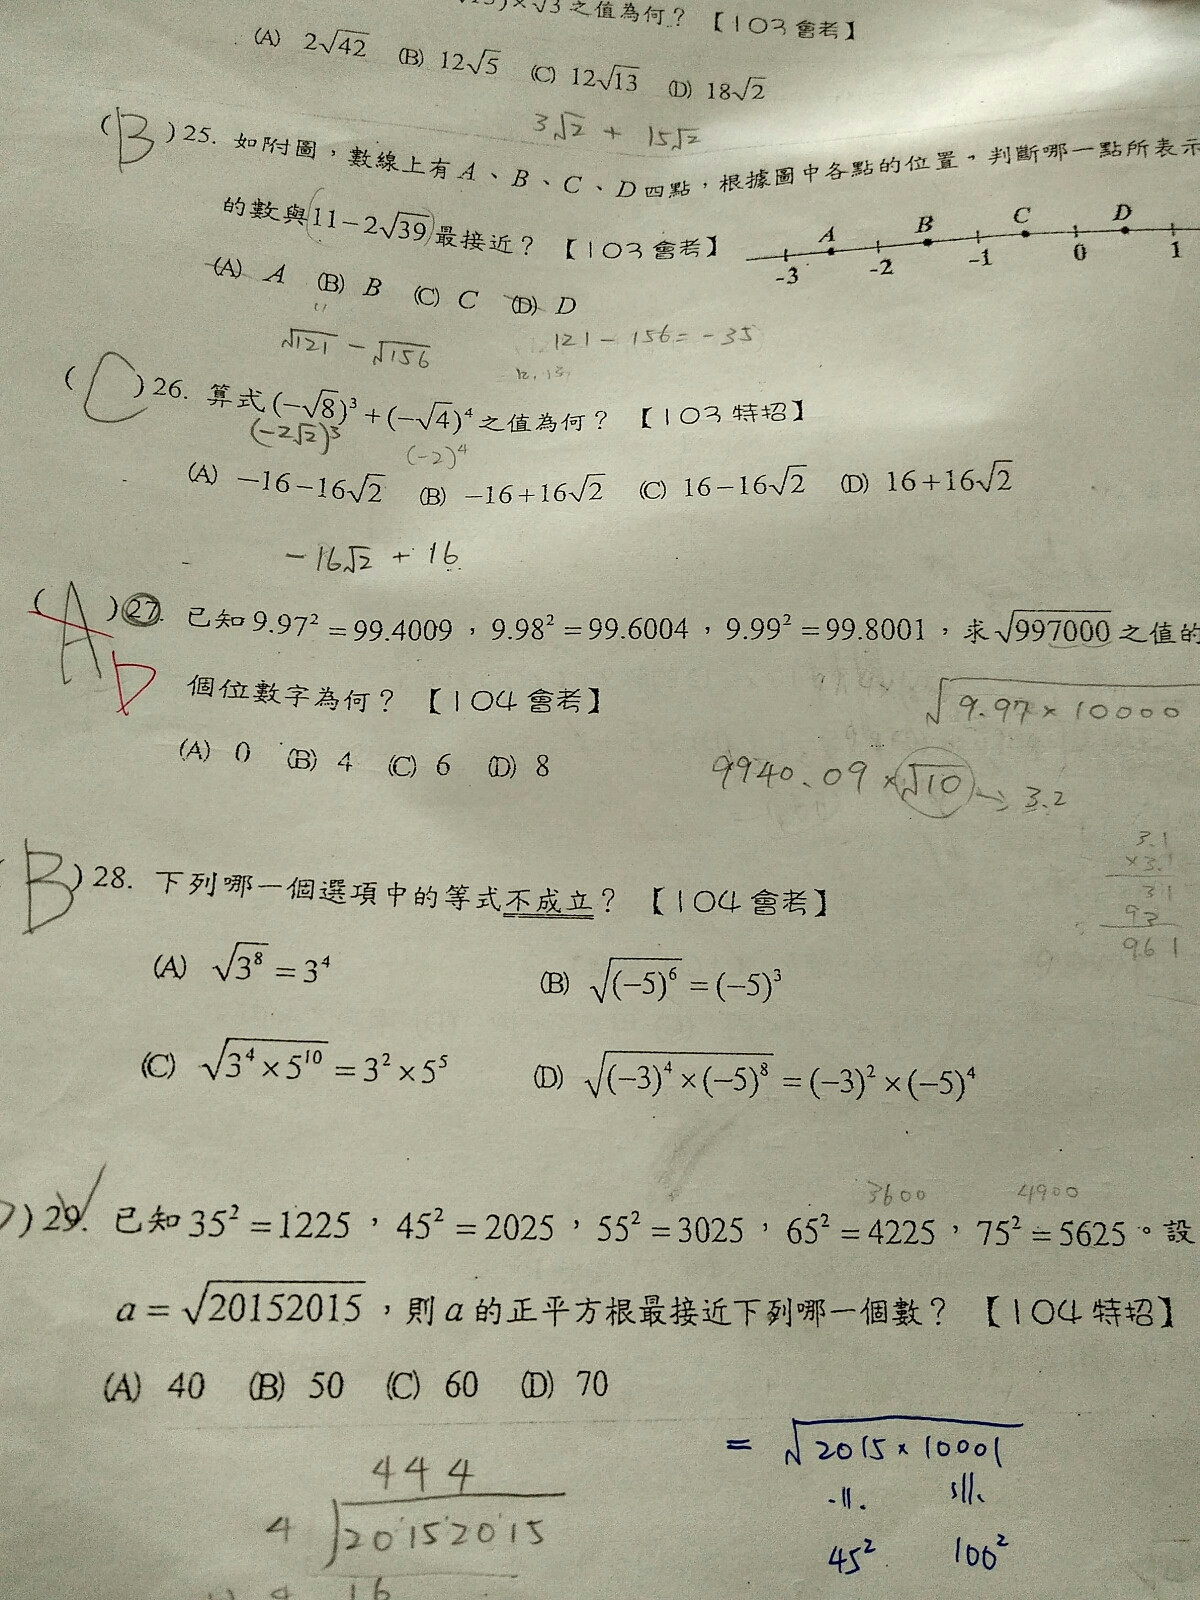 √3 之值為何？【103會考】
(A) 2√42 (B) 12√5 (C) 12√13 (D) 18√2
3√2 + 15√2
(B) 25. 如附圖，數線上有 A、B、C、D 四點，根據圖中各點的位置，判斷哪一點所表示
的數與 11−2√39 最接近？【103會考】
A B C D
-3 -2 -1 0 1
(A) A (B) B (C) C (D) D
√121 − √156
121 − 156 = −35
(C) 26. 算式 (−√8)³+(−√4)⁴ 之值為何？【103特招】
(−2√2)³ (−2)⁴
(A) −16−16√2 (B) −16+16√2 (C) 16−16√2 (D) 16+16√2
−16√2 + 16
(A) 27. 已知 9.97²=99.4009，9.98²=99.6004，9.99²=99.8001，求 √997000 之值的
D
個位數字為何？【104會考】
√9.97×10000
(A) 0 (B) 4 (C) 6 (D) 8
9940.09×√10 → 3.2
3.1
×3.1
31
93
961
(B) 28. 下列哪一個選項中的等式不成立？【104會考】
(A) √3⁸ = 3⁴ (B) √(−5)⁶ = (−5)³
(C) √3⁴×5¹⁰ = 3²×5⁵ (D) √(−3)⁴×(−5)⁸ = (−3)²×(−5)⁴
3600 4900
) 29. 已知 35²=1225，45²=2025，55²=3025，65²=4225，75²=5625。設
a=√20152015，則 a 的正平方根最接近下列哪一個數？【104特招】
(A) 40 (B) 50 (C) 60 (D) 70
= √2015×10001
45² 100²
444
4 √20152015
16